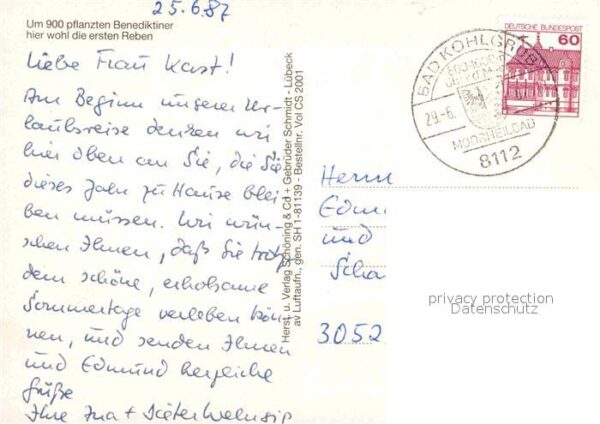 25.6.87
Um 900 pflanzten Benediktiner
hier wohl die ersten Reben
Liebe Frau Kast!
Am Beginn unserer Ur-
laubsreise denken wir
hier oben an Sie, die Sie
dieses Jahr zu Hause blei-
ben müssen. Wir wün-
schen Ihnen, daß Sie trotz
dem schöne, erholsame
Sommertage verleben kön-
nen, und senden Ihnen
und Edmund herzliche
Grüße
Ihre Ina + Dieter
Herst. u. Verlag Schöning & Co + Gebrüder Schmidt - Lübeck
av Luftaufn., gen. SH 1-81139 - Bestellnr. Vol CS 2001
DEUTSCHE BUNDESPOST
60
BAD KOHLGRUB
29.-6.
MOORHEILBAD
8112
Herrn
Edmu
und
Scha
3052
privacy protection
Datenschutz